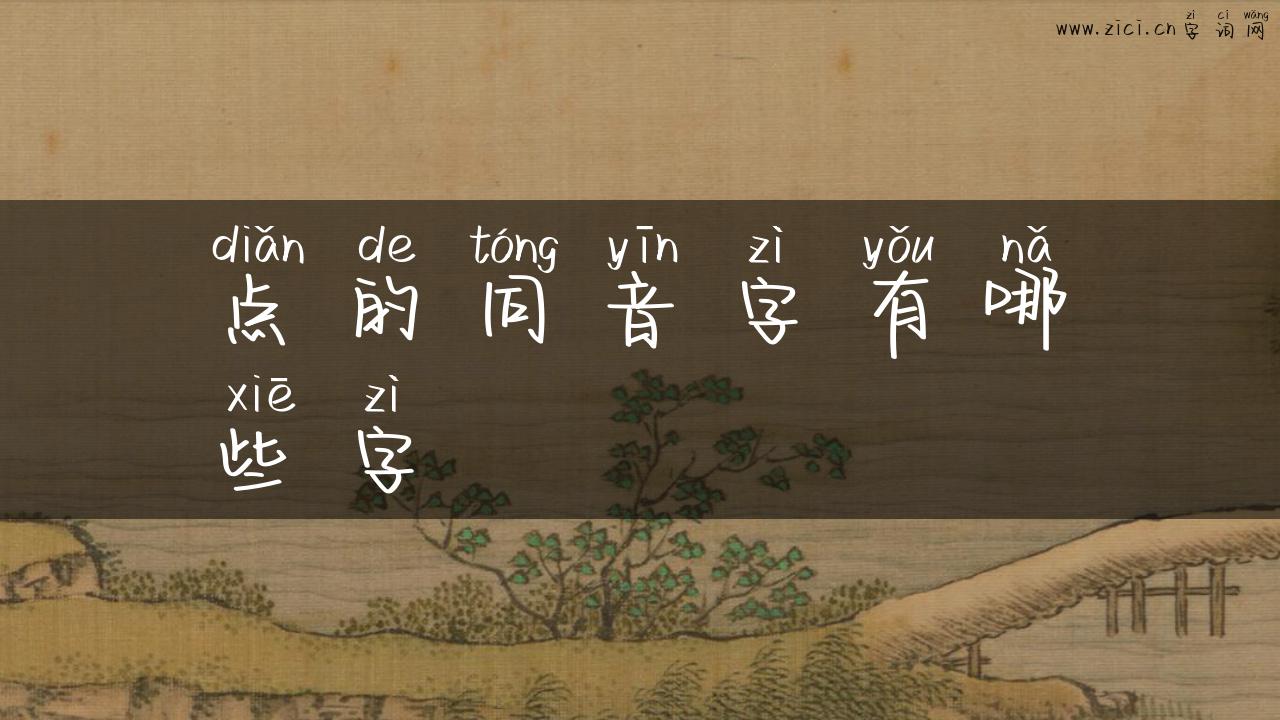 zì cí wǎng
www.zici.cn 字 词 网
diǎn de tóng yīn zì yǒu nǎ
点 的 同 音 字 有 哪
xiē zì
些 字